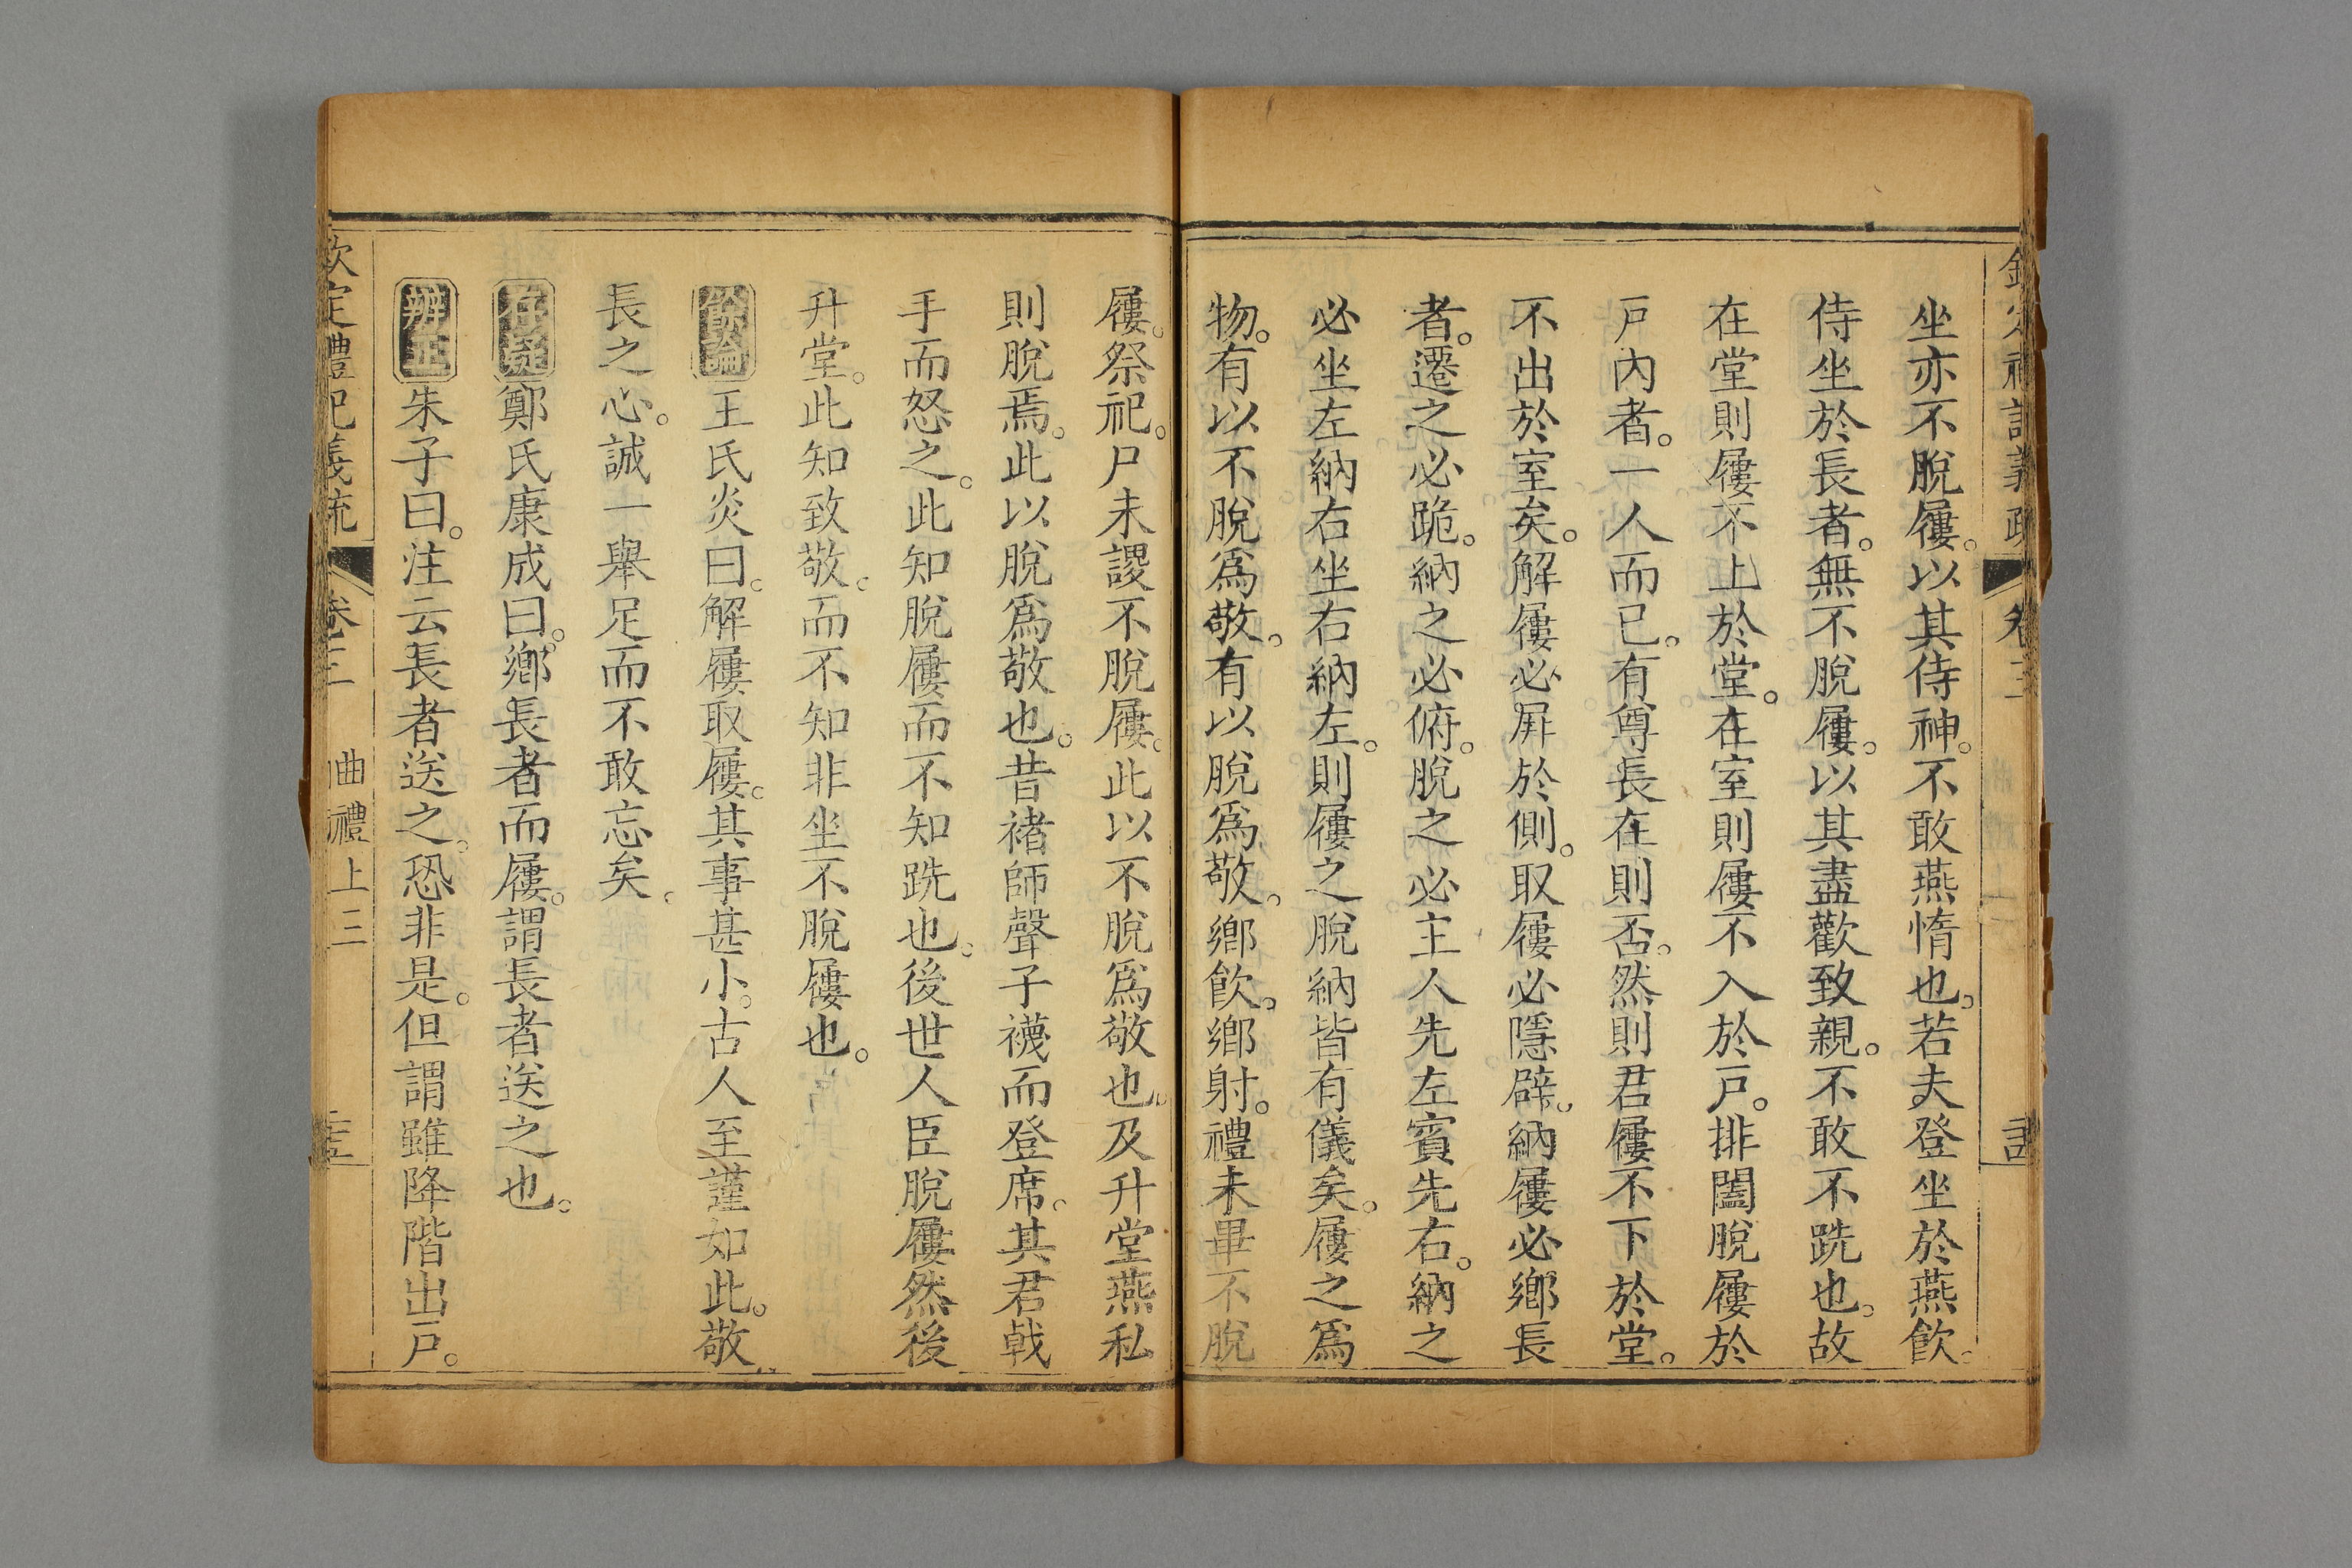 坐亦不脫屨。以其侍神。不敢燕惰也。若夫登坐於燕飲。
侍坐於長者。無不脫屨。以其盡歡致親。不敢不跣也。故
在堂則屨不上於堂。在室則屨不入於戶。排闔脫屨於
戶內者。一人而已。有尊長在則否。然則君屨不下於堂。
不出於室矣。解屨必屏於側。取屨必隱辟。納屨必鄉長
者。遷之必跪。納之必俯。脫之必主人先左賓先右。納之
必坐左納右坐右納左。則屨之脫納皆有儀矣。屨之爲
物。有以不脫爲敬。有以脫爲敬。鄉飲。鄉射。禮未畢不脫
屨。祭祀。尸未謖不脫屨。此以不脫爲敬也。及升堂燕私
則脫焉。此以脫爲敬也。昔褚師聲子襪而登席。其君戟
手而怒之。此知脫屨而不知跣也。後世人臣脫屨然後
升堂。此知致敬。而不知非坐不脫屨也。
餘論 王氏炎曰。解屨取屨。其事甚小。古人至謹如此。敬
長之心。誠一舉足而不敢忘矣。
存疑 鄭氏康成曰。鄉長者而屨。謂長者送之也。
辨正 朱子曰。注云長者送之。恐非是。但謂雖降階出戶。
欽定禮記義疏 卷三 曲禮上三